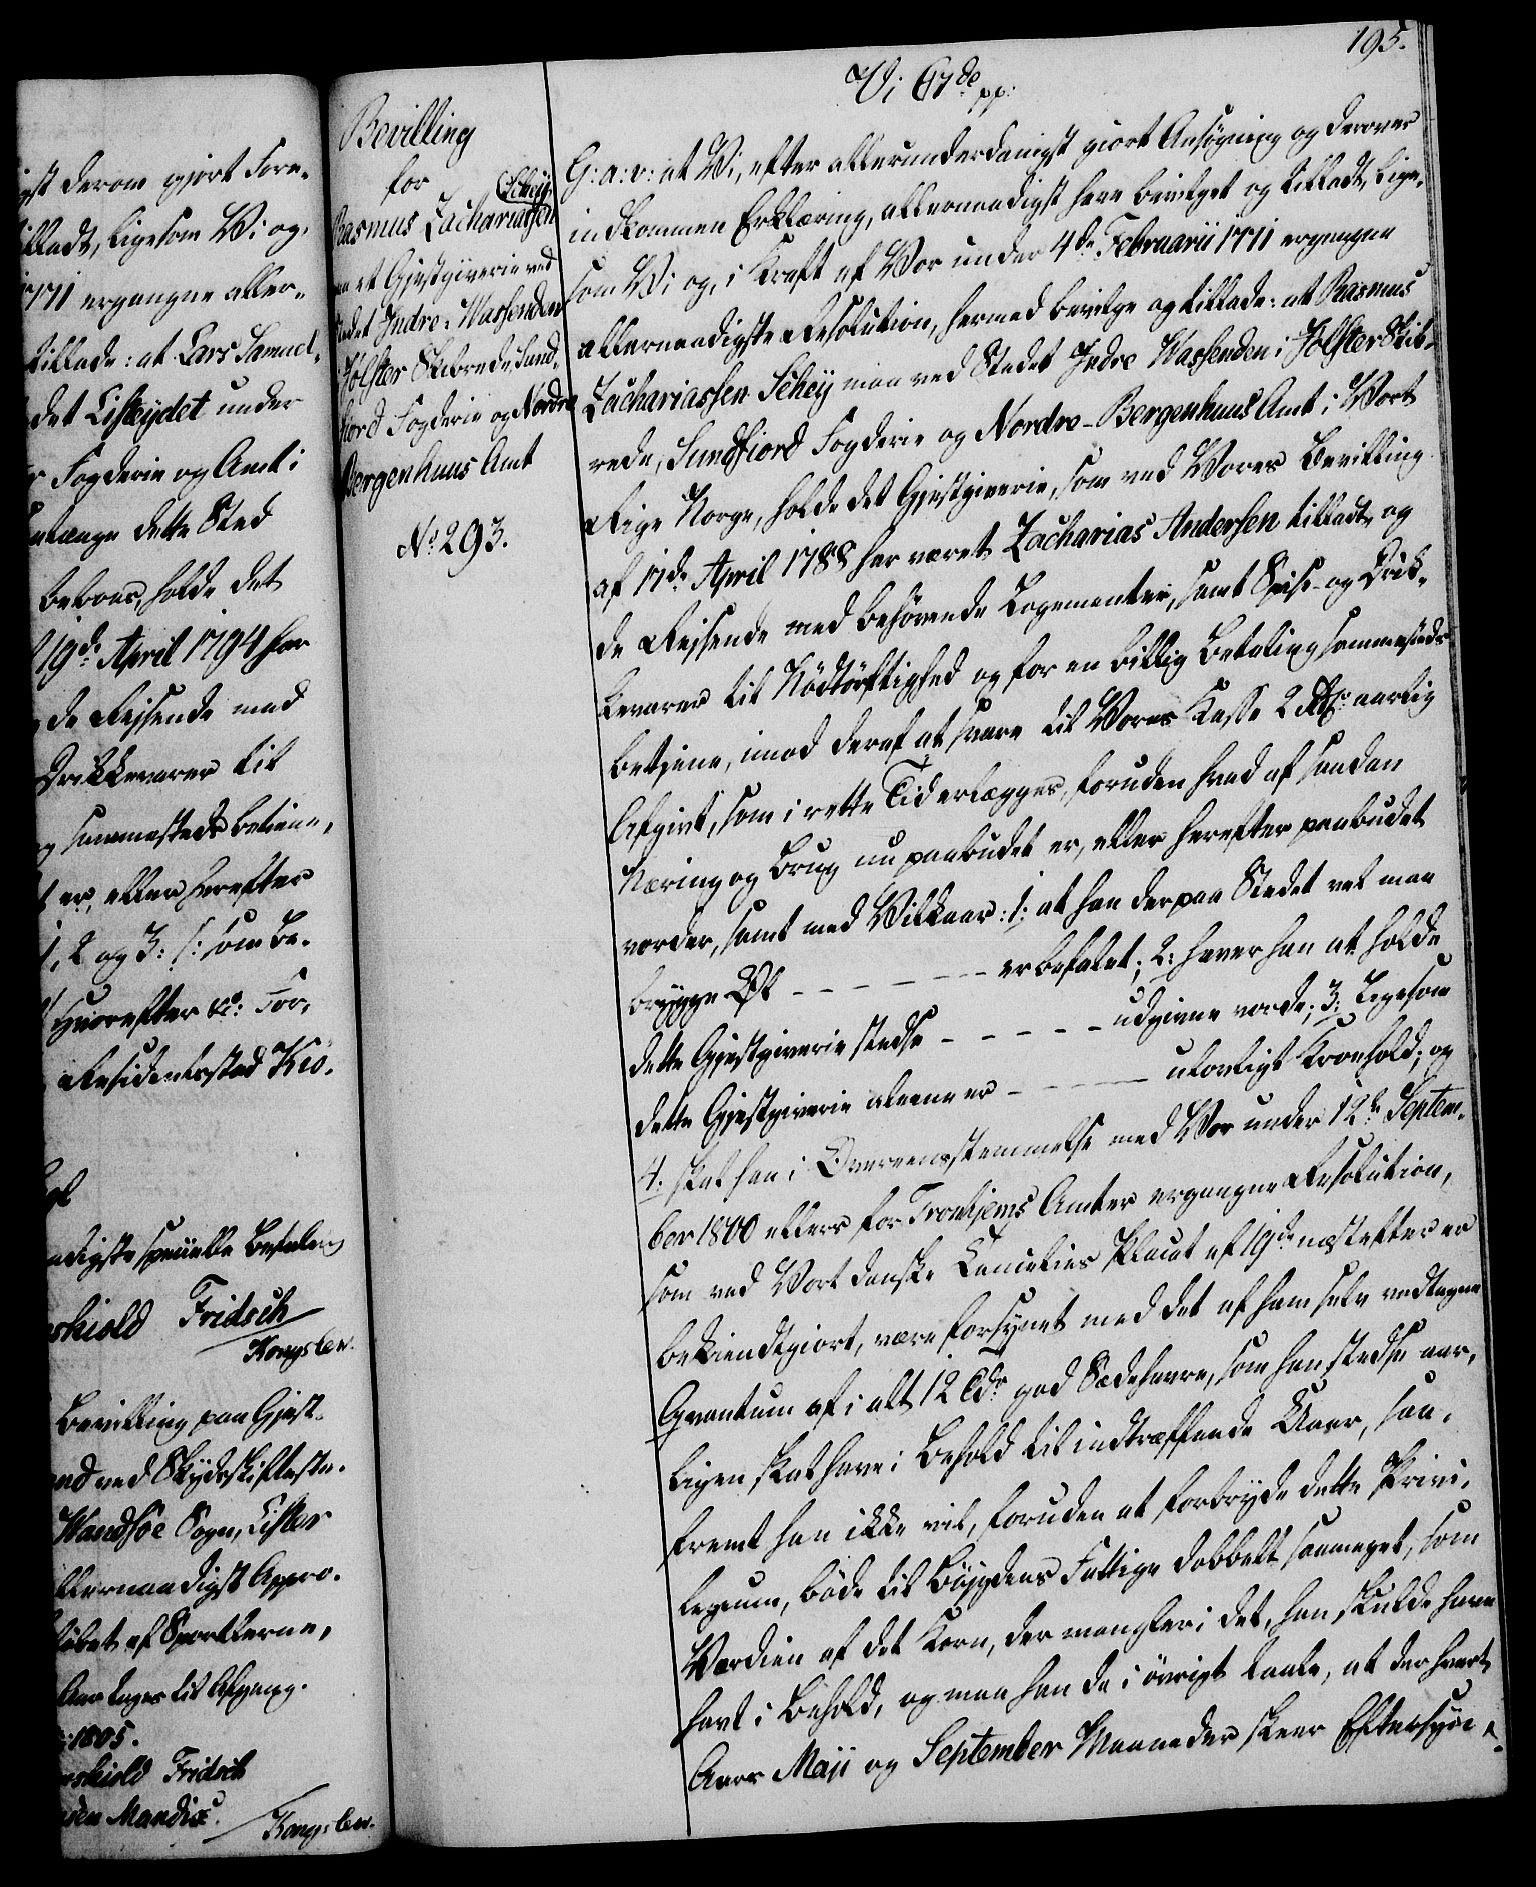 gst derom gjort Fore-
tilladt, ligesom Vi og,
1771 ergangne aller-
tillade: at Lars Samuel-
det Liskeydet under
Fogderie og Amt i
saalænge dette Sted
beboes, holde det
19de April 1794 har
de Reisende med
Drikkevarer til
og sammesteds betiene,
er, eller herefter
1, 2 og 3: /: som be-
Hvorefter &c: For-
Residentsstad Kiö-
adigste specielle Befaling
skiold Fridsch
Kongslev.
Bevilling paa Gjest-
ved Skydsskifteste-
Wandsöe Sogn, Lister
allernaadigst Appro-
löbet af Sportlerne,
Aar tages til Afgang.
1805.
skiold Fridsch
sen Mandix.
Kongslev.
Bevilling
for
Schey
Rasmus Zachariassen
paa et Gjestgiverie ved
Stedet Indre-Wassenden
Jölster Skibrede, Sund-
fiord Fogderie og Nordre
Bergenhuus Amt
No 293.
195.
Vi C 7de pp:
G: a: v: at Vi, efter allerunderdanigst giort Ansögning og derover
indkommen Erklæring, allernaadigst have bevilget og tilladt, lige-
som Vi og, i Kraft af Vor under 4de Februarii 1771 ergangne
allernaadigste Resolution, hermed bevilge og tillade: at Rasmus
Zachariassen Schey maa ved Stedet Indre Wassenden i Jölster Skib-
rede, Sundfiord Fogderie og Nordre-Bergenhuus Amt i Vort
Rige Norge, holde det Gjestgiverie, som ved Vores Bevilling
af 11de April 1788 har været Zacharias Andersen tilladt, og
de Reisende med behörende Logementer, samt Spise- og Drik-
kevarer til Nödtörftighed og for en billig Betaling sammesteds
betjene, imod deraf at svare til Vores Kasse 2 Rdr. aarlig
Afgivt, som i rette Tid erlægges, foruden hvad af saadan
Næring og Brug nu paabudet er, eller herefter paabudet
vorder, samt med Vilkaar: 1; at han der paa Stedet vel maa
brygge Øl - - - - - - er befalet; 2: haver han at holde
dette Gjestgiverie stedse - - - - - - udgivne vorde; 3: Ligesom
dette Gjestgiverie aleene er - - - - - ulovligt Kroehold; og
4. skal han i Overeensstemmelse med Vor under 12te Septem-
ber 1800 ellers for Tronhjems Amter ergangne Resolution,
som ved Vort danske Cancelies Placat af 19de næstefter er
bekiendtgiort, være forsynet med det af ham selv vedtagne
Qvantum af i alt 12 Tdr god Sædehavre, som han stedse aar-
ligen skal have i Behold til indtræffende Uaar, saa-
fremt han ikke vil, foruden at forbryde dette Privi-
legium, böde til Bögdens Fattige dobbelt saameget, som
Værdien af det Korn, der mangler i det, han skulde have
havt i Behold, og maa han da i övrigt taale, at der hvert
Aars Maji og September Maaneder skeer Eftersyn